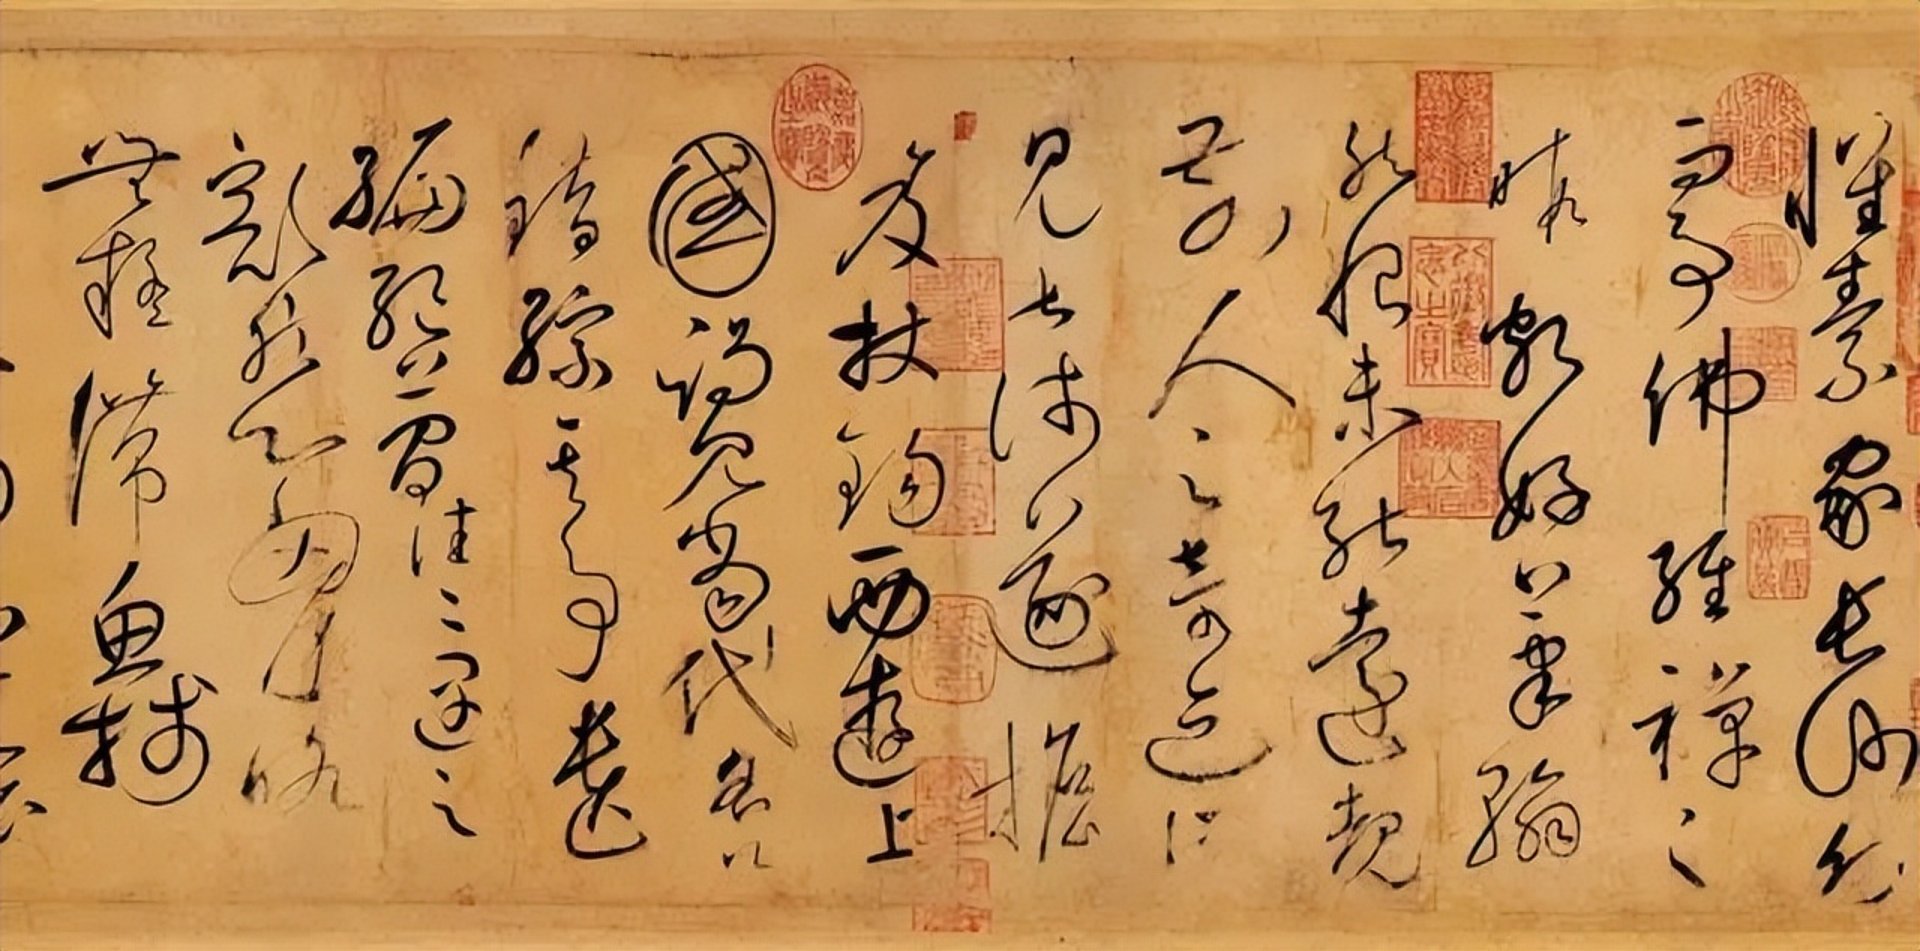 懷素家長沙幼
而事佛經禪之
暇頗好筆翰
然恨未能遠覩
前人之奇迹所
見甚淺遂擔
笈杖錫西遊上
國謁見當代名公
錯綜其事遺
編絕簡往往遇之
豁然心胸略
無疑滯魚牋